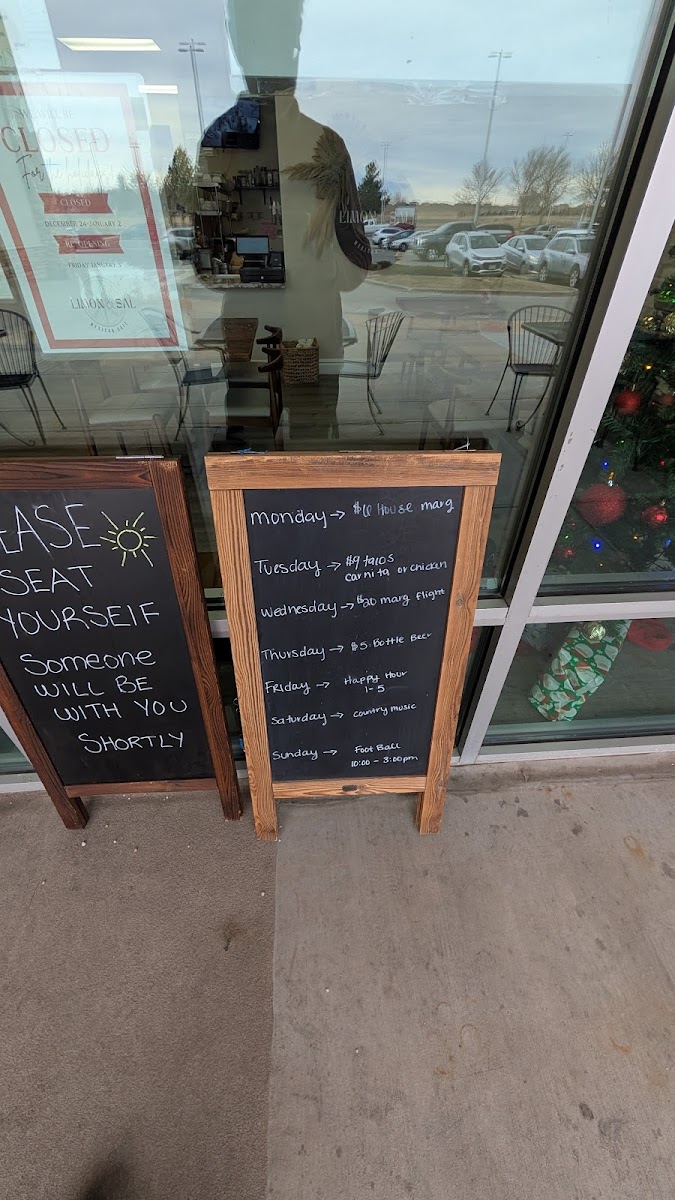 CLOSED
For
CLOSED
DECEMBER 24-JANUARY 2
RE-OPENING
FRIDAY JANUARY 3
LIMON & SAL
LIMON
EASE
SEAT
YOURSELF
Someone
WILL BE
WITH YOU
SHORTLY
Monday → $6 House marg
Tuesday → $9 tacos
carnita or chicken
Wednesday → $20 marg flight
Thursday → $5 Bottle Beer
Friday → Happy Hour
1-5
Saturday → country music
Sunday → Foot Ball
10:00 - 3:00pm